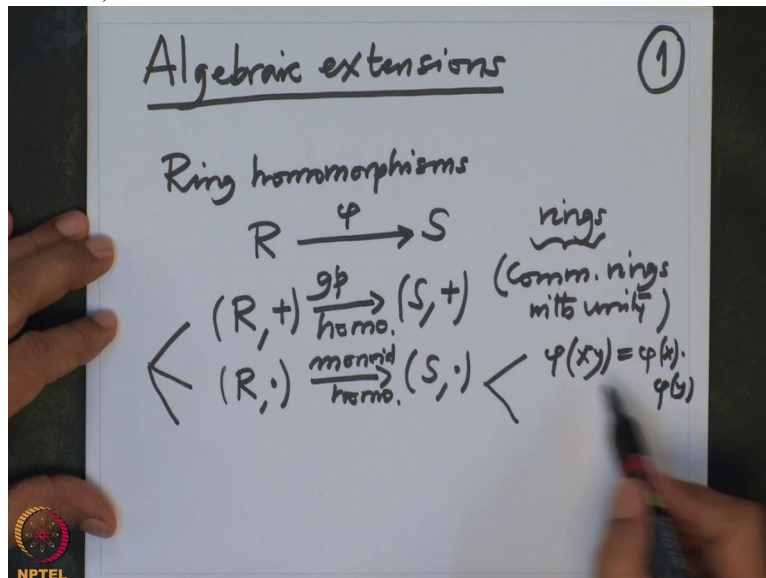 Algebraic extensions
1
Ring homomorphisms
R φ→ S rings
(Comm. rings
with unity)
(R,+) gp homo.→ (S,+)
(R,·) monoid homo.→ (S,·)
φ(xy) = φ(x)·
φ(y)
NPTEL